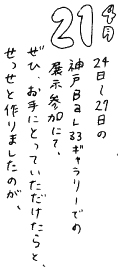 4月
21
24日〜29日の
神戸BAL33ギャラリーでの
展示参加にて、
ぜひ、お手にとっていただけたらと、
せっせと作りましたのが、